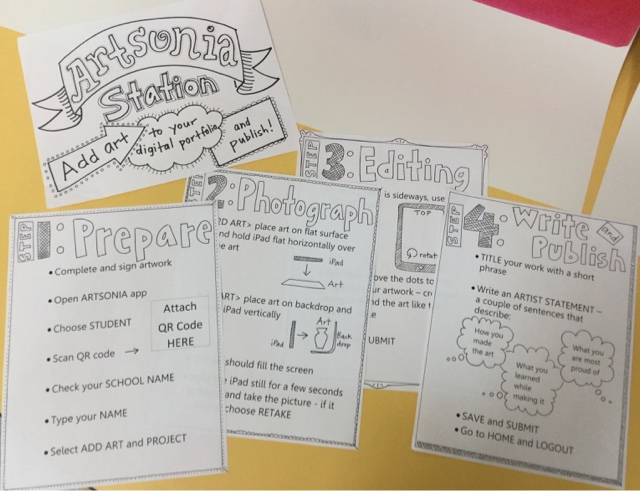 Artsonia
Station
Add art
to your
digital portfolio
and
Publish!
STEP 1: Prepare
• Complete and sign artwork
• Open ARTSONIA app
• Choose STUDENT
• Scan QR code →
Attach
QR Code
HERE
• Check your SCHOOL NAME
• Type your NAME
• Select ADD ART and PROJECT
2: Photograph
ART> place art on flat surface
and hold iPad flat horizontally over
art
iPad
Art
ART> place art on backdrop and
iPad vertically
iPad
Art
Back
drop
should fill the screen
iPad still for a few seconds
and take the picture - if it
choose RETAKE
STEP 3: Editing
is sideways, use
TOP
rotat
the dots to
artwork –
the art like
STEP 4: Write and
Publish
• TITLE your work with a short
phrase
• Write an ARTIST STATEMENT –
a couple of sentences that
describe:
How you
made
the art
What you
learned
while
making it
What you
are most
proud of
• SAVE and SUBMIT
• Go to HOME and LOGOUT